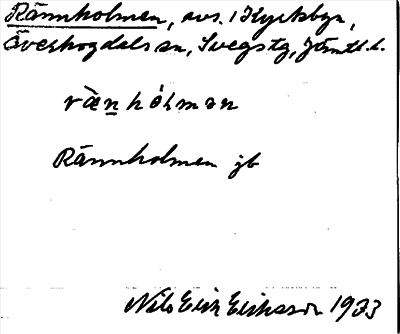 Rännholmen, avs. i Kyrkbyn,
Överhogdals sn, Svegs tg, Jämtl. l.
ræ̀n hól̀mən
Rännholmen jb
Nils Erik Eriksson 1933